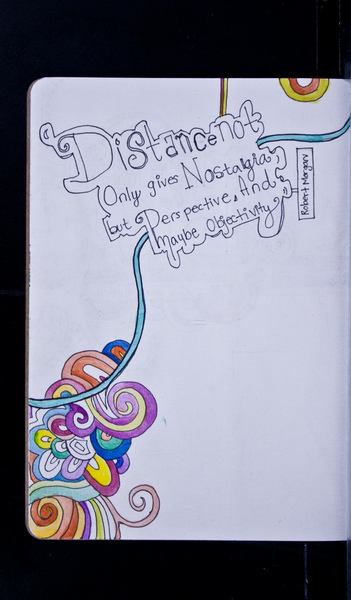 Distance not
Only gives Nostalgia,
but Perspective, And
maybe Objectivity"
Robert Morgan